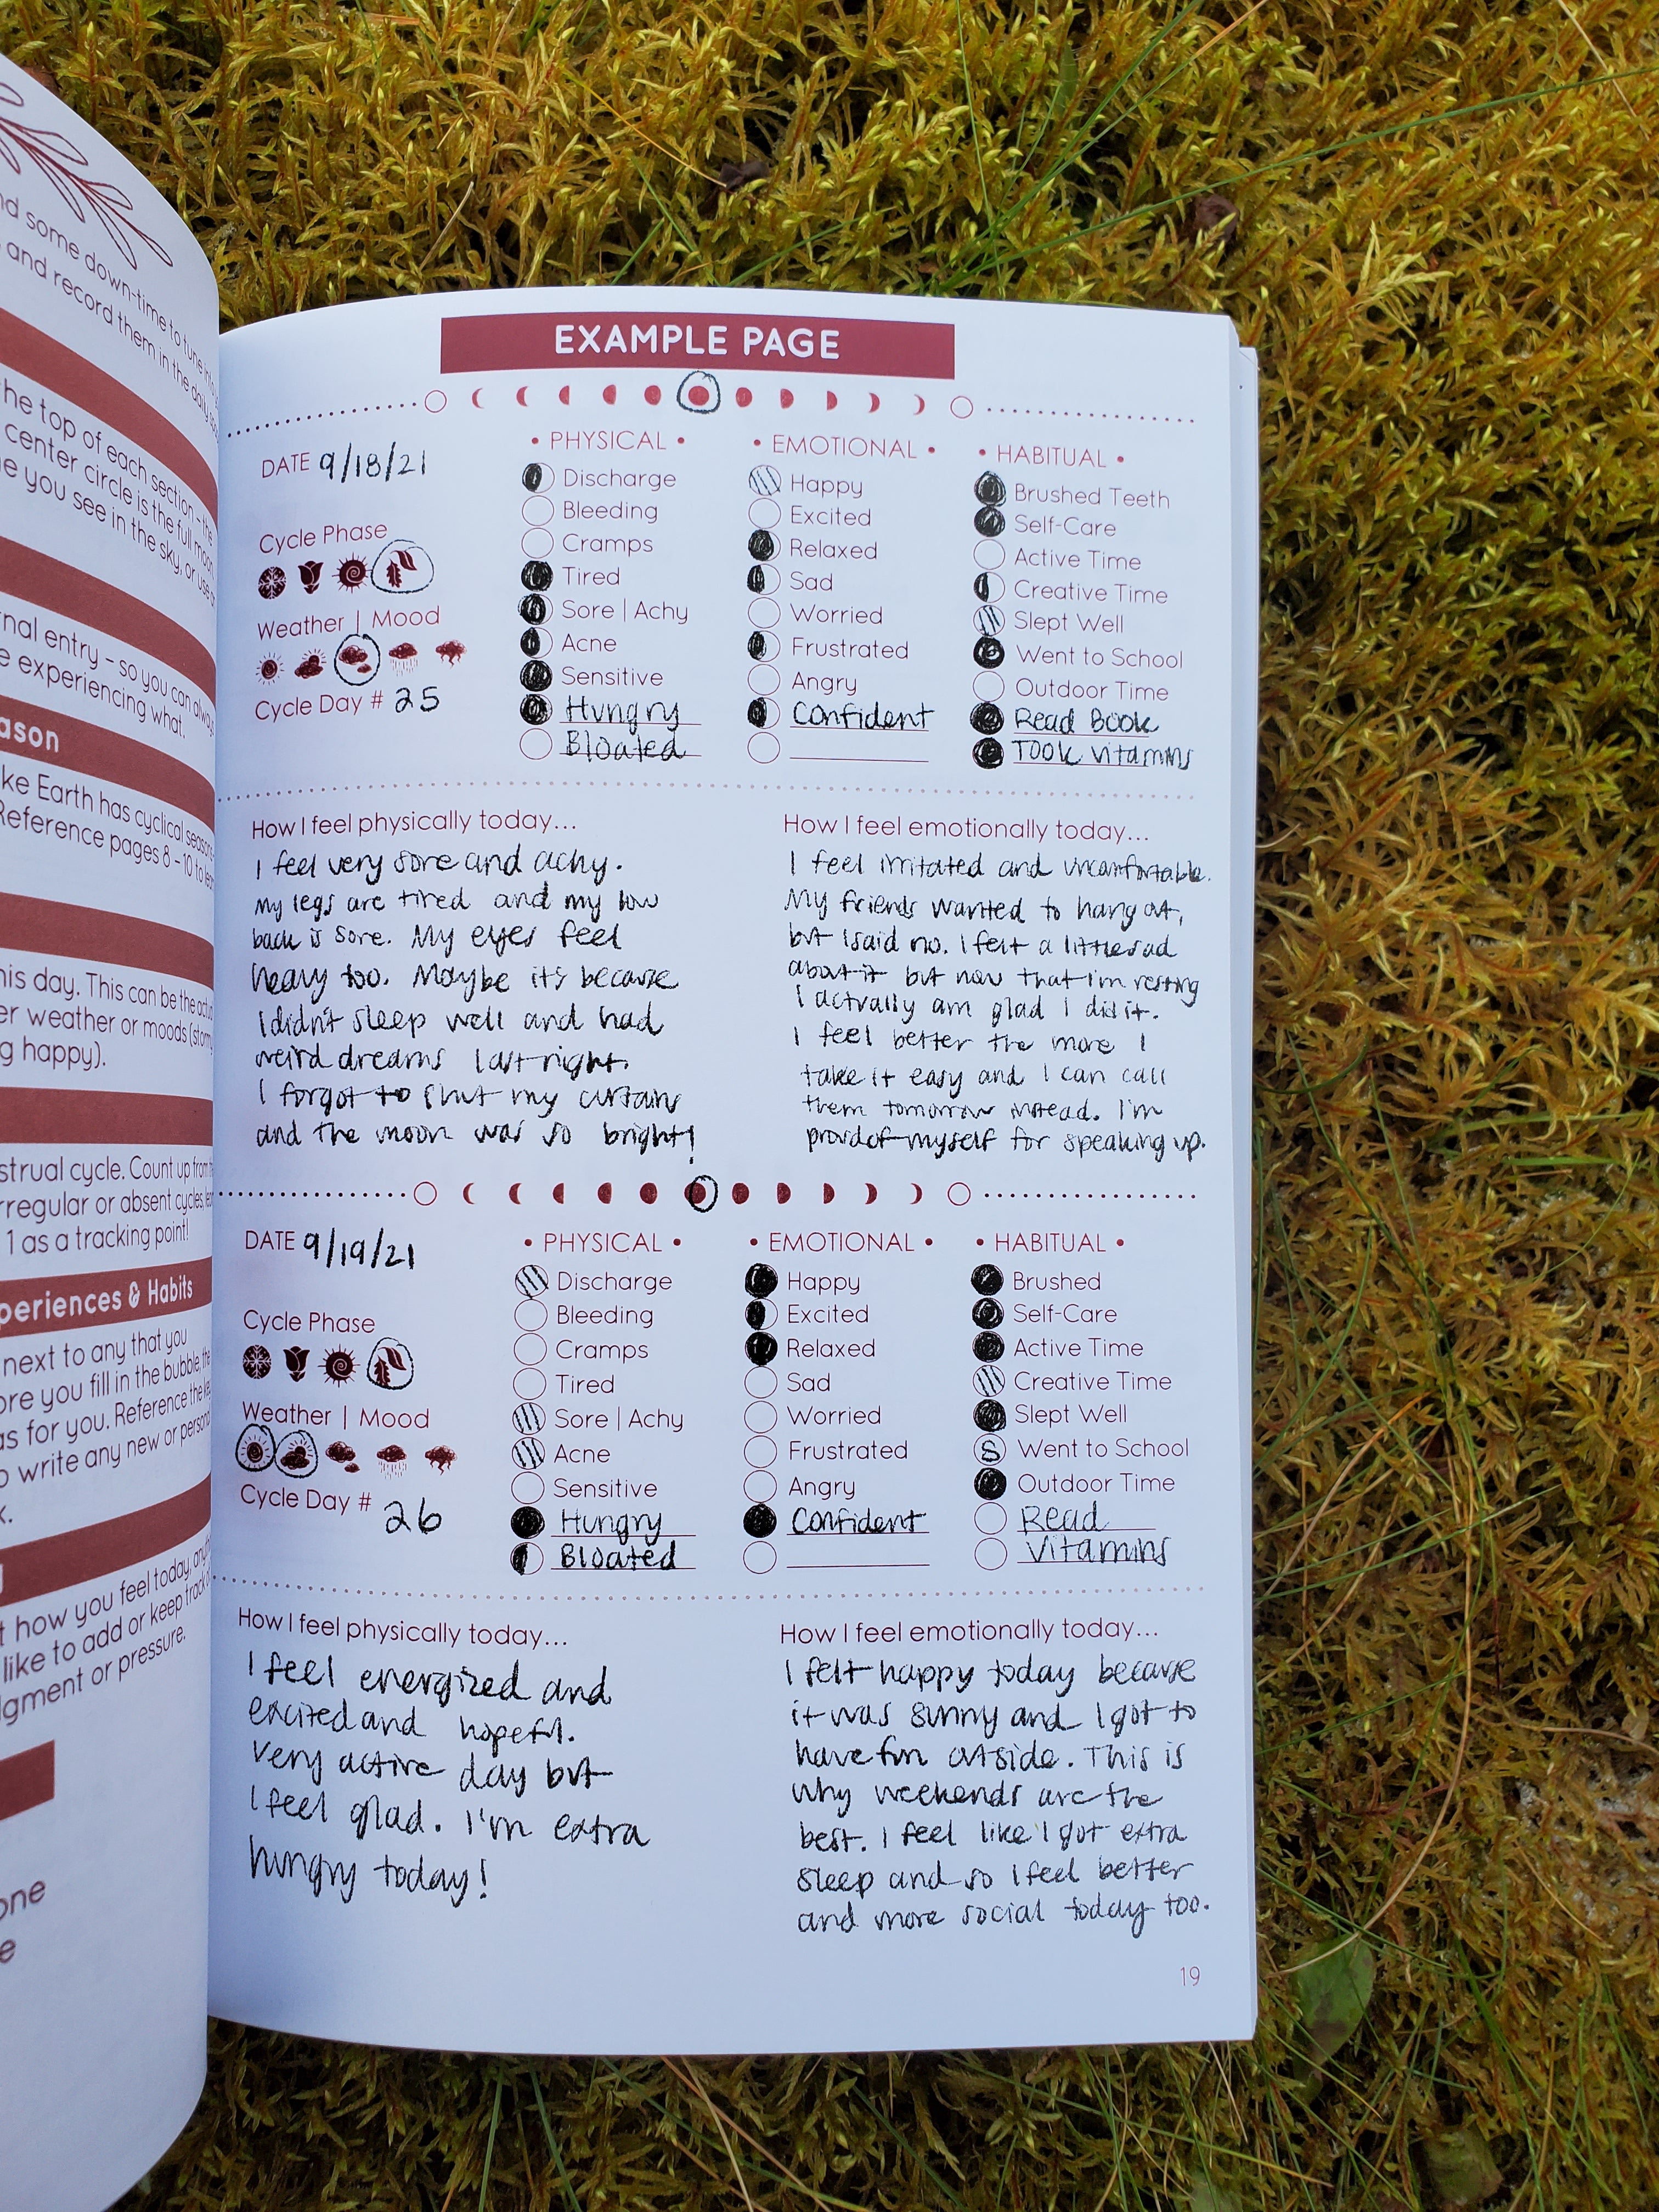 nd some down-time to tune in
and record them in the daily
the top of each section - the
center circle is the full moon
e you see in the sky, or use
rnal entry - so you can always
e experiencing what.
ason
ke Earth has cyclical seasons
Reference pages 8 - 10 to
his day. This can be the actual
er weather or moods (stormy
g happy).
strual cycle. Count up from
rregular or absent cycles,
1 as a tracking point!
periences & Habits
next to any that you
ore you fill in the bubble, the
as for you. Reference the key
o write any new or personal
k.
t how you feel today,
like to add or keep track
dgment or pressure.
one
e
EXAMPLE PAGE
DATE 9/18/21
Cycle Phase
Weather | Mood
Cycle Day # 25
• PHYSICAL •
Discharge
Bleeding
Cramps
Tired
Sore | Achy
Acne
Sensitive
Hungry
Bloated
• EMOTIONAL •
Happy
Excited
Relaxed
Sad
Worried
Frustrated
Angry
Confident
• HABITUAL •
Brushed Teeth
Self-Care
Active Time
Creative Time
Slept Well
Went to School
Outdoor Time
Read Book
Took vitamins
How I feel physically today...
I feel very sore and achy.
My legs are tired and my low
back is sore. My eyes feel
heavy too. Maybe it's because
I didn't sleep well and had
weird dreams last night.
I forgot to shut my curtains
and the moon was so bright!
How I feel emotionally today...
I feel irritated and uncomfortable.
My friends wanted to hang out,
but I said no. I felt a little sad
about it but now that I'm resting
I actually am glad I did it.
I feel better the more I
take it easy and I can call
them tomorrow instead. I'm
proud of myself for speaking up.
DATE 9/19/21
Cycle Phase
Weather | Mood
Cycle Day # 26
• PHYSICAL •
Discharge
Bleeding
Cramps
Tired
Sore | Achy
Acne
Sensitive
Hungry
Bloated
• EMOTIONAL •
Happy
Excited
Relaxed
Sad
Worried
Frustrated
Angry
Confident
• HABITUAL •
Brushed
Self-Care
Active Time
Creative Time
Slept Well
S Went to School
Outdoor Time
Read
Vitamins
How I feel physically today...
I feel energized and
excited and hopeful.
Very active day but
I feel glad. I'm extra
hungry today!
How I feel emotionally today...
I felt happy today because
it was sunny and I got to
have fun outside. This is
why weekends are the
best. I feel like I got extra
sleep and so I feel better
and more social today too.
19